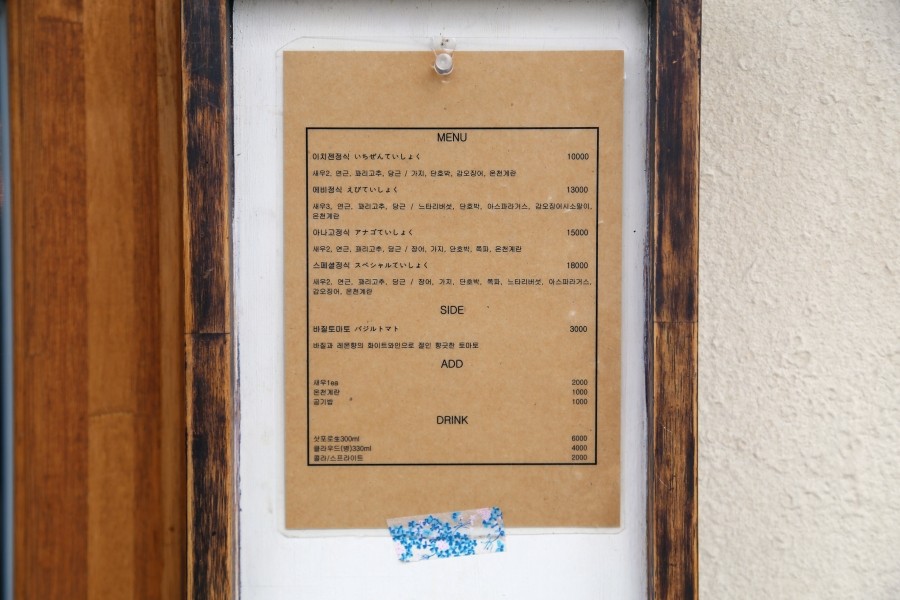 MENU
이치젠정식 いちぜんていしょく 10000
새우2, 연근, 꽈리고추, 당근 / 가지, 단호박, 갑오징어, 온천계란
에비정식 えびていしょく 13000
새우3, 연근, 꽈리고추, 당근 / 느타리버섯, 단호박, 아스파라거스, 갑오징어시소말이,
온천계란
아나고정식 アナゴていしょく 15000
새우2, 연근, 꽈리고추, 당근 / 장어, 가지, 단호박, 쪽파, 온천계란
스페셜정식 スペシャルていしょく 18000
새우2, 연근, 꽈리고추, 당근 / 장어, 가지, 단호박, 쪽파, 느타리버섯, 아스파라거스,
갑오징어, 온천계란
SIDE
바질토마토 バジルトマト 3000
바질과 레몬향의 화이트와인으로 절인 향긋한 토마토
ADD
새우1ea 2000
온천계란 1000
공기밥 1000
DRINK
삿포로生300ml 6000
클라우드(병)330ml 4000
콜라/스프라이트 2000